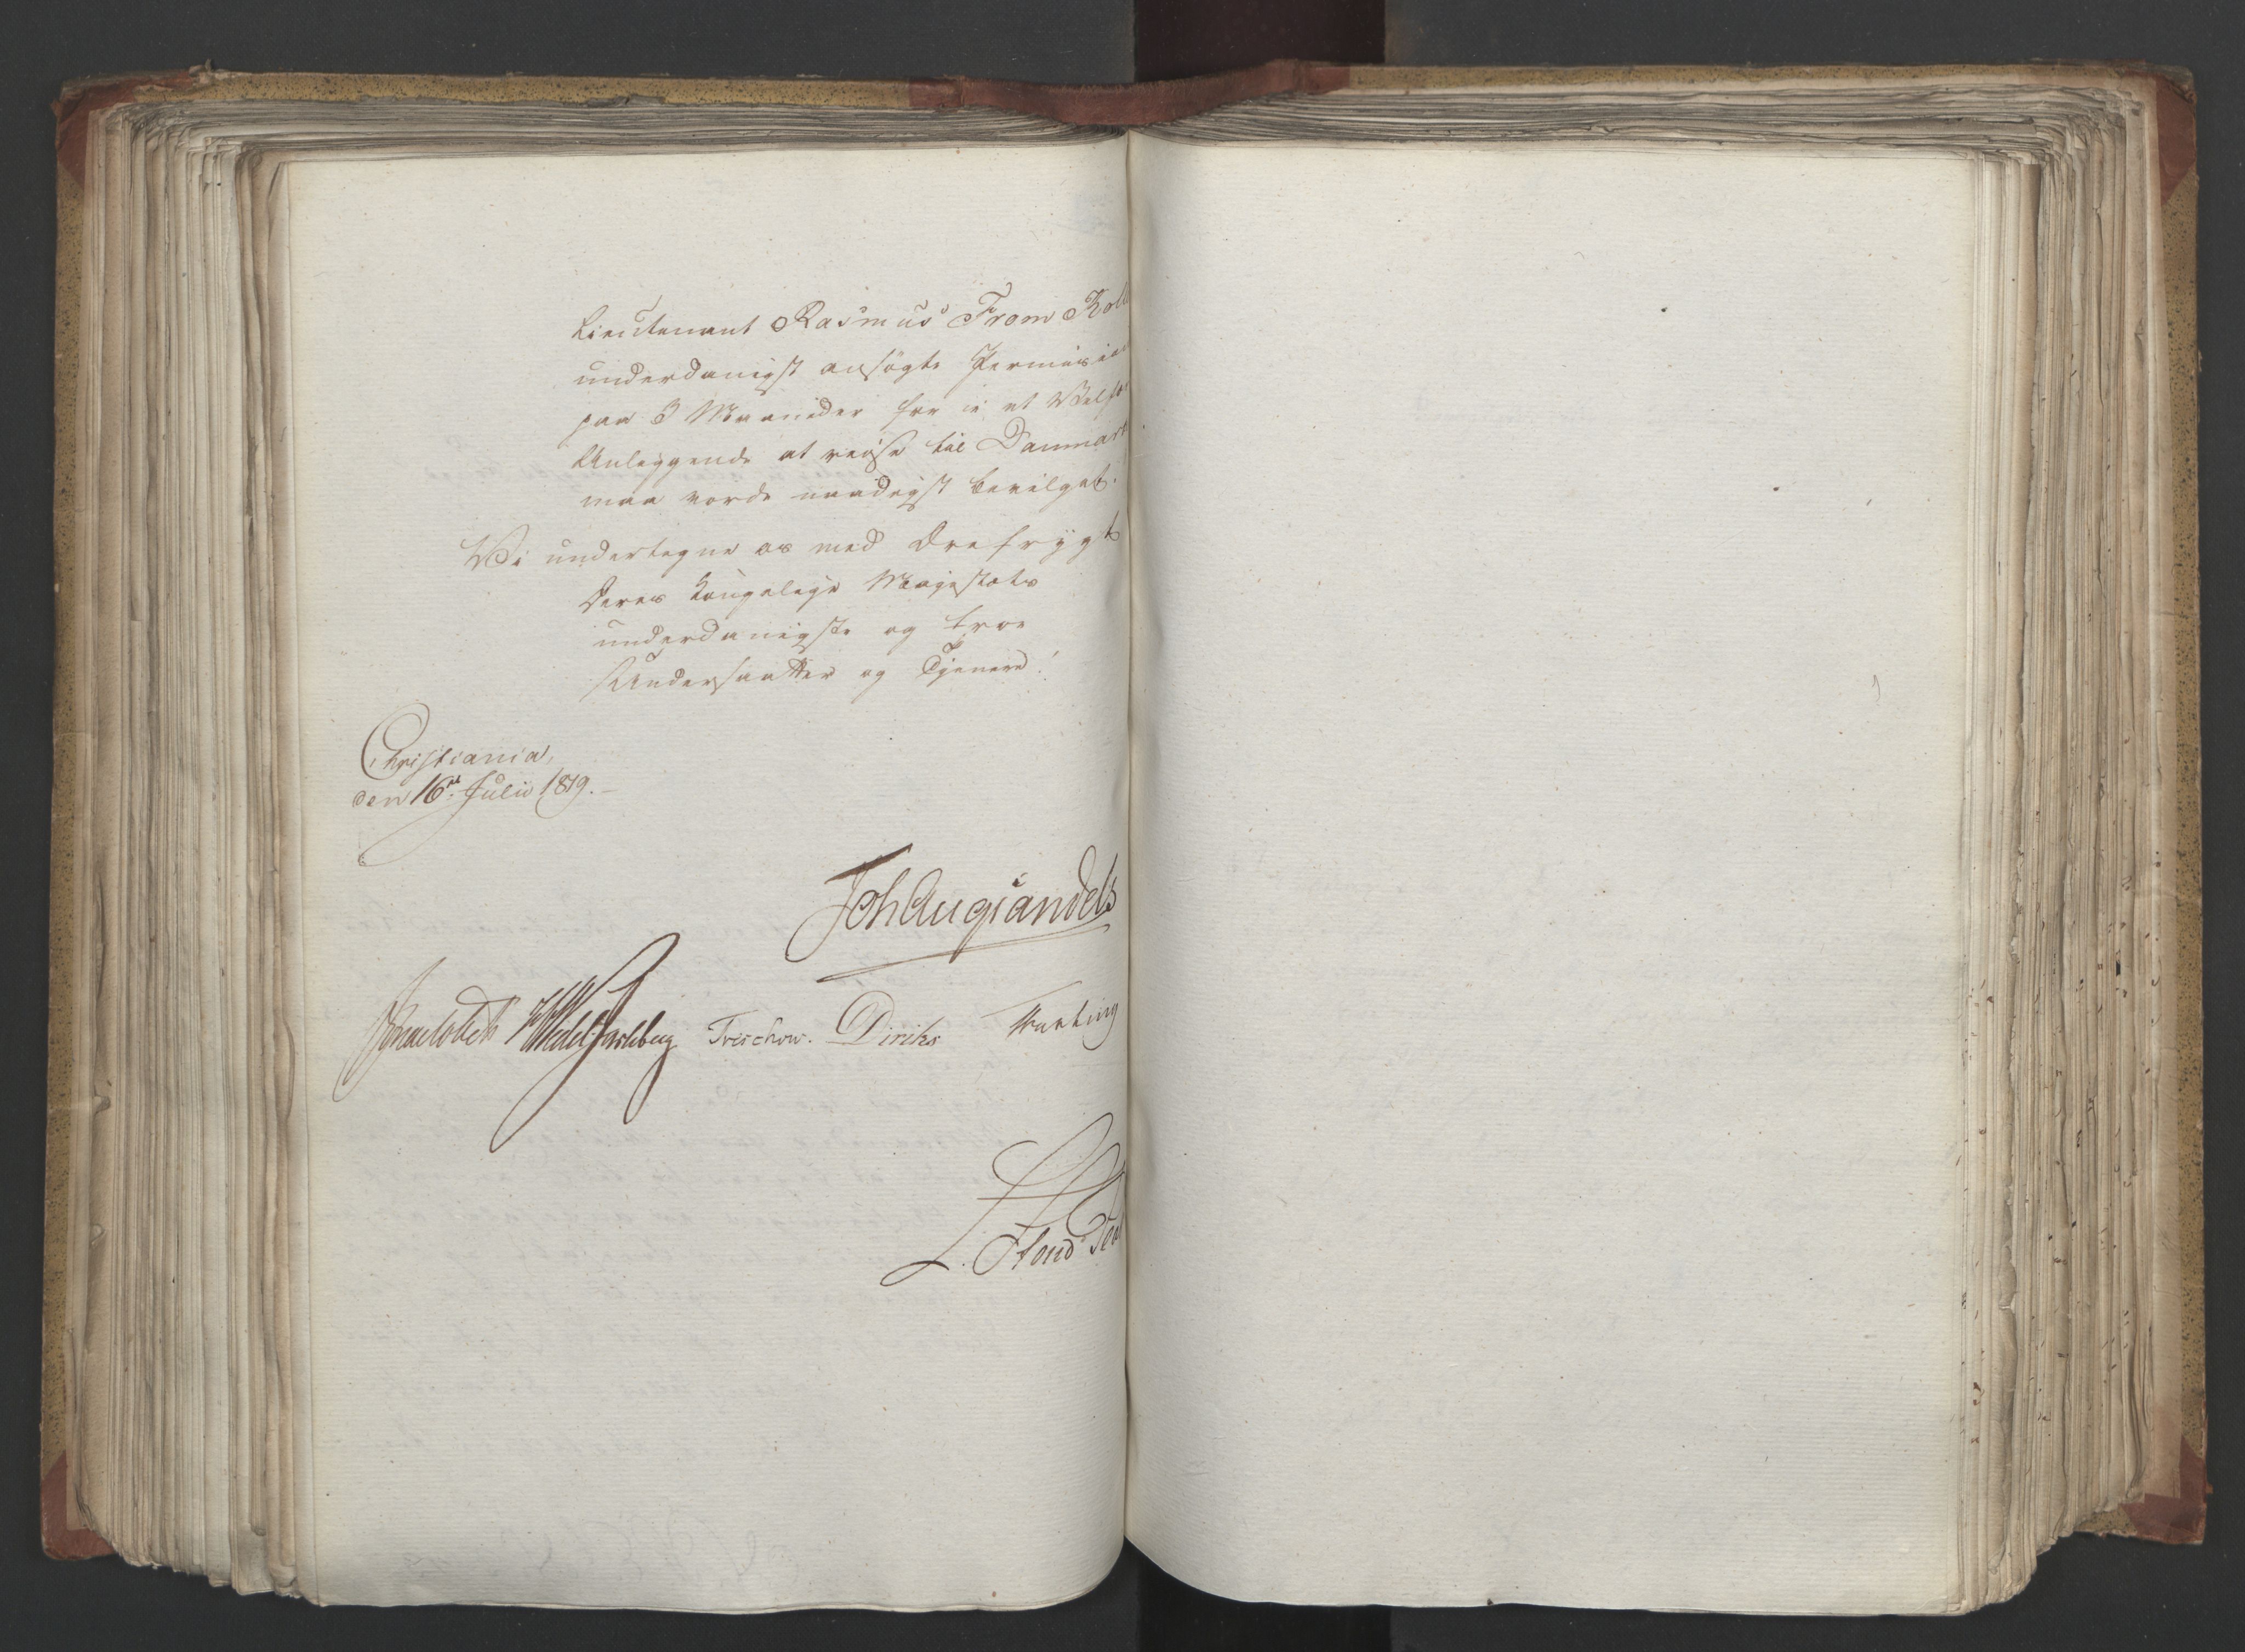 Lieutenant Rasmus From
underdanigst ansøgte Permission
paa 3 Maaneder for i et Velfærds
Anliggende at reise til Danmark
maa vorde naadigst bevilget.
Vi undertegne os med Ærefrygt
Deres Kongelige Majestæts
underdanigste og troe
Undersaatter og Tjenere!
Christiania,
den 16de Julii 1819.
Joh Aug Sandels
Wedel Jarlsberg Treschow. Diriks